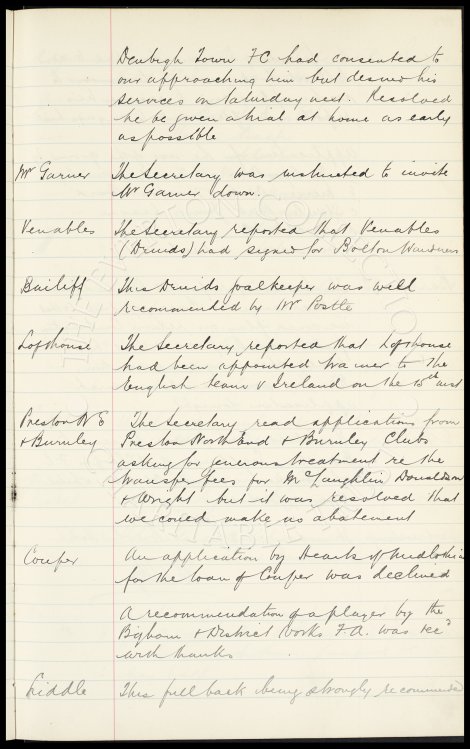 Denbigh Town FC had consented to
our approaching him but desired his
services on Saturday next. Resolved
he be given a trial at home as early
as possible
Mr Garner The Secretary was instructed to invite
Mr Garner down.
Venables The Secretary reported that Venables
(Druids) had signed for Bolton Wanderers
Bailiff This Druids goalkeeper was well
recommended by Mr Postle
Lofthouse The Secretary reported that Lofthouse
had been appointed trainer to the
English team v Ireland on the 15th inst
Preston N E The Secretary read applications from
& Burnley Preston North End & Burnley Clubs
asking for generous treatment re the
transfer fees for McLaughlin Donaldson
& Wright but it was resolved that
we could make no abatement
Couper An application by Hearts of Midlothian
for the loan of Couper was declined
A recommendation of a player by the
& District Works F.A. was recd
with thanks.
Liddle This full back being strongly recommended